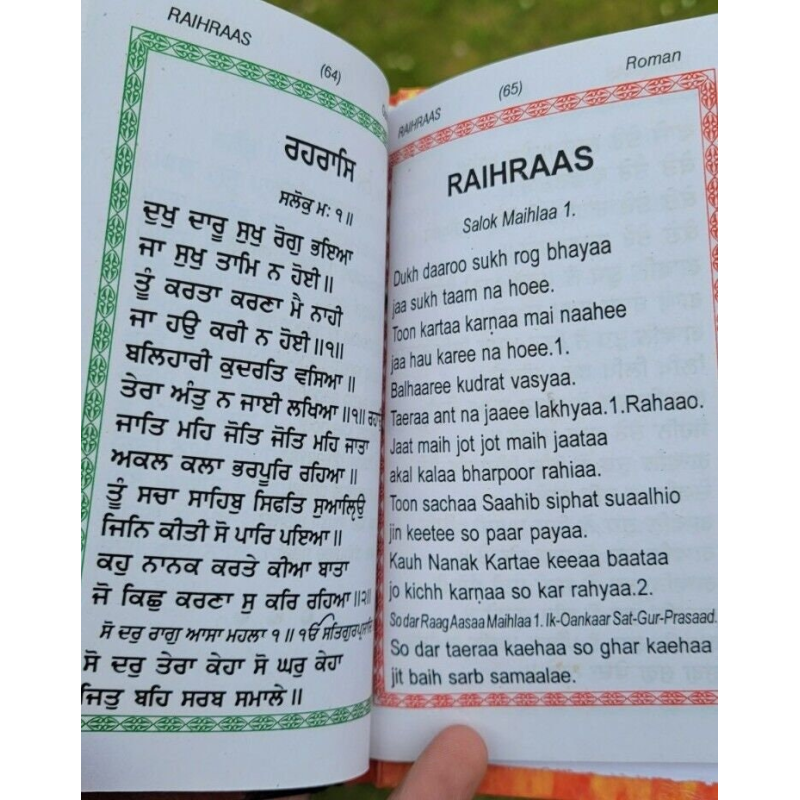 RAIHRAAS
(64)
ਰਹਰਾਸਿ
ਸਲੋਕੁ ਮਃ ੧॥
ਦੁਖੁ ਦਾਰੂ ਸੁਖੁ ਰੋਗੁ ਭਇਆ
ਜਾ ਸੁਖੁ ਤਾਮਿ ਨ ਹੋਈ॥
ਤੂੰ ਕਰਤਾ ਕਰਣਾ ਮੈ ਨਾਹੀ
ਜਾ ਹਉ ਕਰੀ ਨ ਹੋਈ॥੧॥
ਬਲਿਹਾਰੀ ਕੁਦਰਤਿ ਵਸਿਆ॥
ਤੇਰਾ ਅੰਤੁ ਨ ਜਾਈ ਲਖਿਆ॥੧॥
ਜਾਤਿ ਮਹਿ ਜੋਤਿ ਜੋਤਿ ਮਹਿ ਜਾਤਾ
ਅਕਲ ਕਲਾ ਭਰਪੂਰਿ ਰਹਿਆ॥
ਤੂੰ ਸਚਾ ਸਾਹਿਬੁ ਸਿਫਤਿ ਸੁਆਲ੍ਹਿਉ
ਜਿਨਿ ਕੀਤੀ ਸੋ ਪਾਰਿ ਪਇਆ॥
ਕਹੁ ਨਾਨਕ ਕਰਤੇ ਕੀਆ ਬਾਤਾ
ਜੋ ਕਿਛੁ ਕਰਣਾ ਸੁ ਕਰਿ ਰਹਿਆ॥੨॥
ਸੋ ਦਰੁ ਰਾਗੁ ਆਸਾ ਮਹਲਾ ੧॥ ੴ ਸਤਿਗੁਰਪ੍ਰਸਾਦਿ
ਸੋ ਦਰੁ ਤੇਰਾ ਕੇਹਾ ਸੋ ਘਰੁ ਕੇਹਾ
ਜਿਤੁ ਬਹਿ ਸਰਬ ਸਮਾਲੇ॥
RAIHRAAS
(65)
Roman
RAIHRAAS
Salok Maihlaa 1.
Dukh daaroo sukh rog bhayaa
jaa sukh taam na hoee.
Toon kartaa karṇaa mai naahee
jaa hau karee na hoee.1.
Balhaaree kudrat vasyaa.
Taeraa ant na jaaee lakhyaa.1.Rahaao.
Jaat maih jot jot maih jaataa
akal kalaa bharpoor rahiaa.
Toon sachaa Saahib siphat suaalhio
jin keetee so paar payaa.
Kauh Nanak Kartae keeaa baataa
jo kichh karṇaa so kar rahyaa.2.
So dar Raag Aasaa Maihlaa 1. Ik-Oankaar Sat-Gur-Prasaad.
So dar taeraa kaehaa so ghar kaehaa
jit baih sarb samaalae.